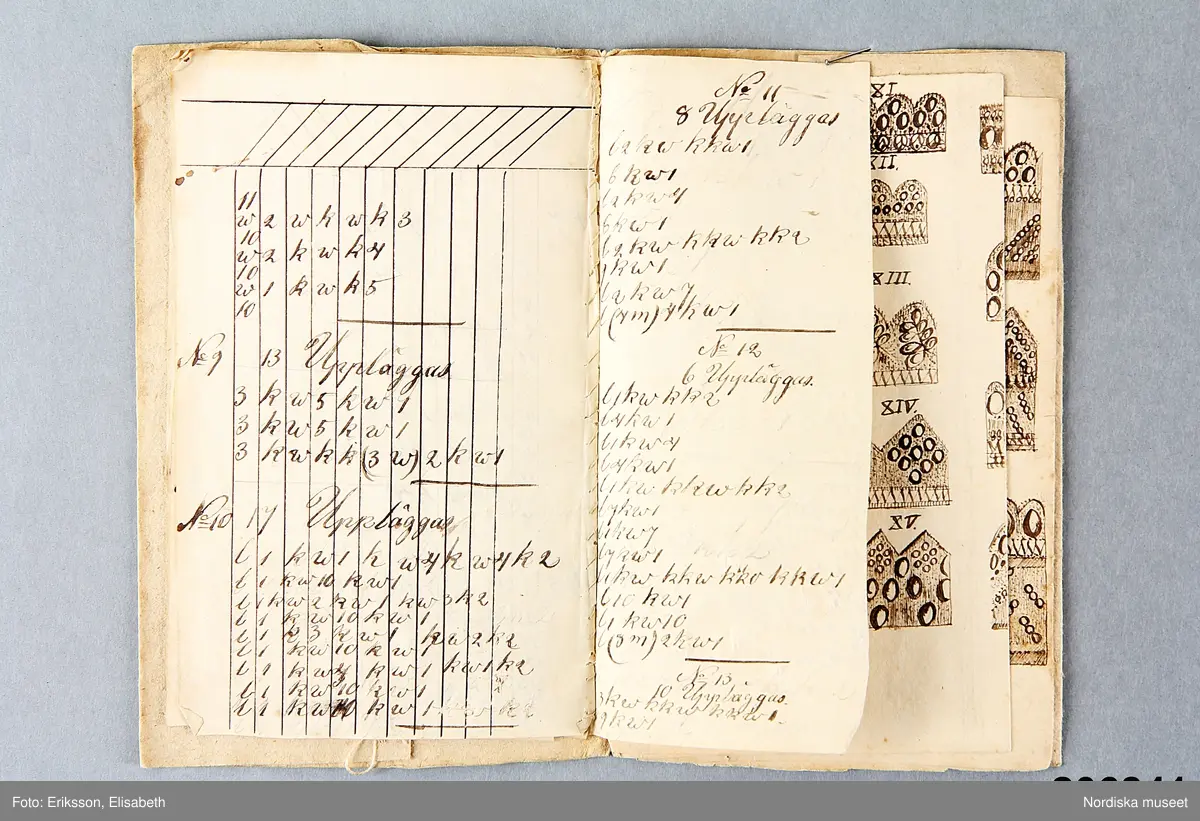 11
w 2 w k w k 3
10
w 2 k w k 4
10
w 1 k w k 5
10
No 9 13 Uppläggas
3 k w 5 k w 1
3 k w 5 k w 1
3 k w k k (3 w) 2 k w 1
No 10 17 Uppläggas
b 1 k w 1 k w 4 k w 4 k 2
b 1 k w 10 k w 1
b 1 k w 2 k w 1 k w 3 k 2
b 1 k w 10 k w 1
b 1 k 3 k w 1 k w 2 k 2
b 1 k w 10 k w 1
b 1 k w k w 1 k w 1 k 2
b 1 k w 10 k w 1
b 1 k w k w 1
No 11
8 Uppläggas
b 2 k w k k w 1
6 k w 1
b 2 k w 4
6 k w 1
b 2 k w k k w k k 2
k w 1
b 2 k w 7
(4 m) 4 k w 1
No 12
6 Uppläggas.
b 1 k w k k 2
b 4 k w 1
b 1 k w 4
b 4 k w 1
b 1 k w k k w k k 2
b 7 k w 1
b 1 k w 7
b 7 k w 1
b 1 k w k k w k k k k w 1
b 10 k w 1
b 1 k w 10
b (8 m) 2 k w 1
No 13
10 Uppläggas.
3 k w k k w k k w 1.
k w 1
XI.
XII.
XIII.
XIV.
XV.
Foto: Eriksson, Elisabeth
Nordiska museet